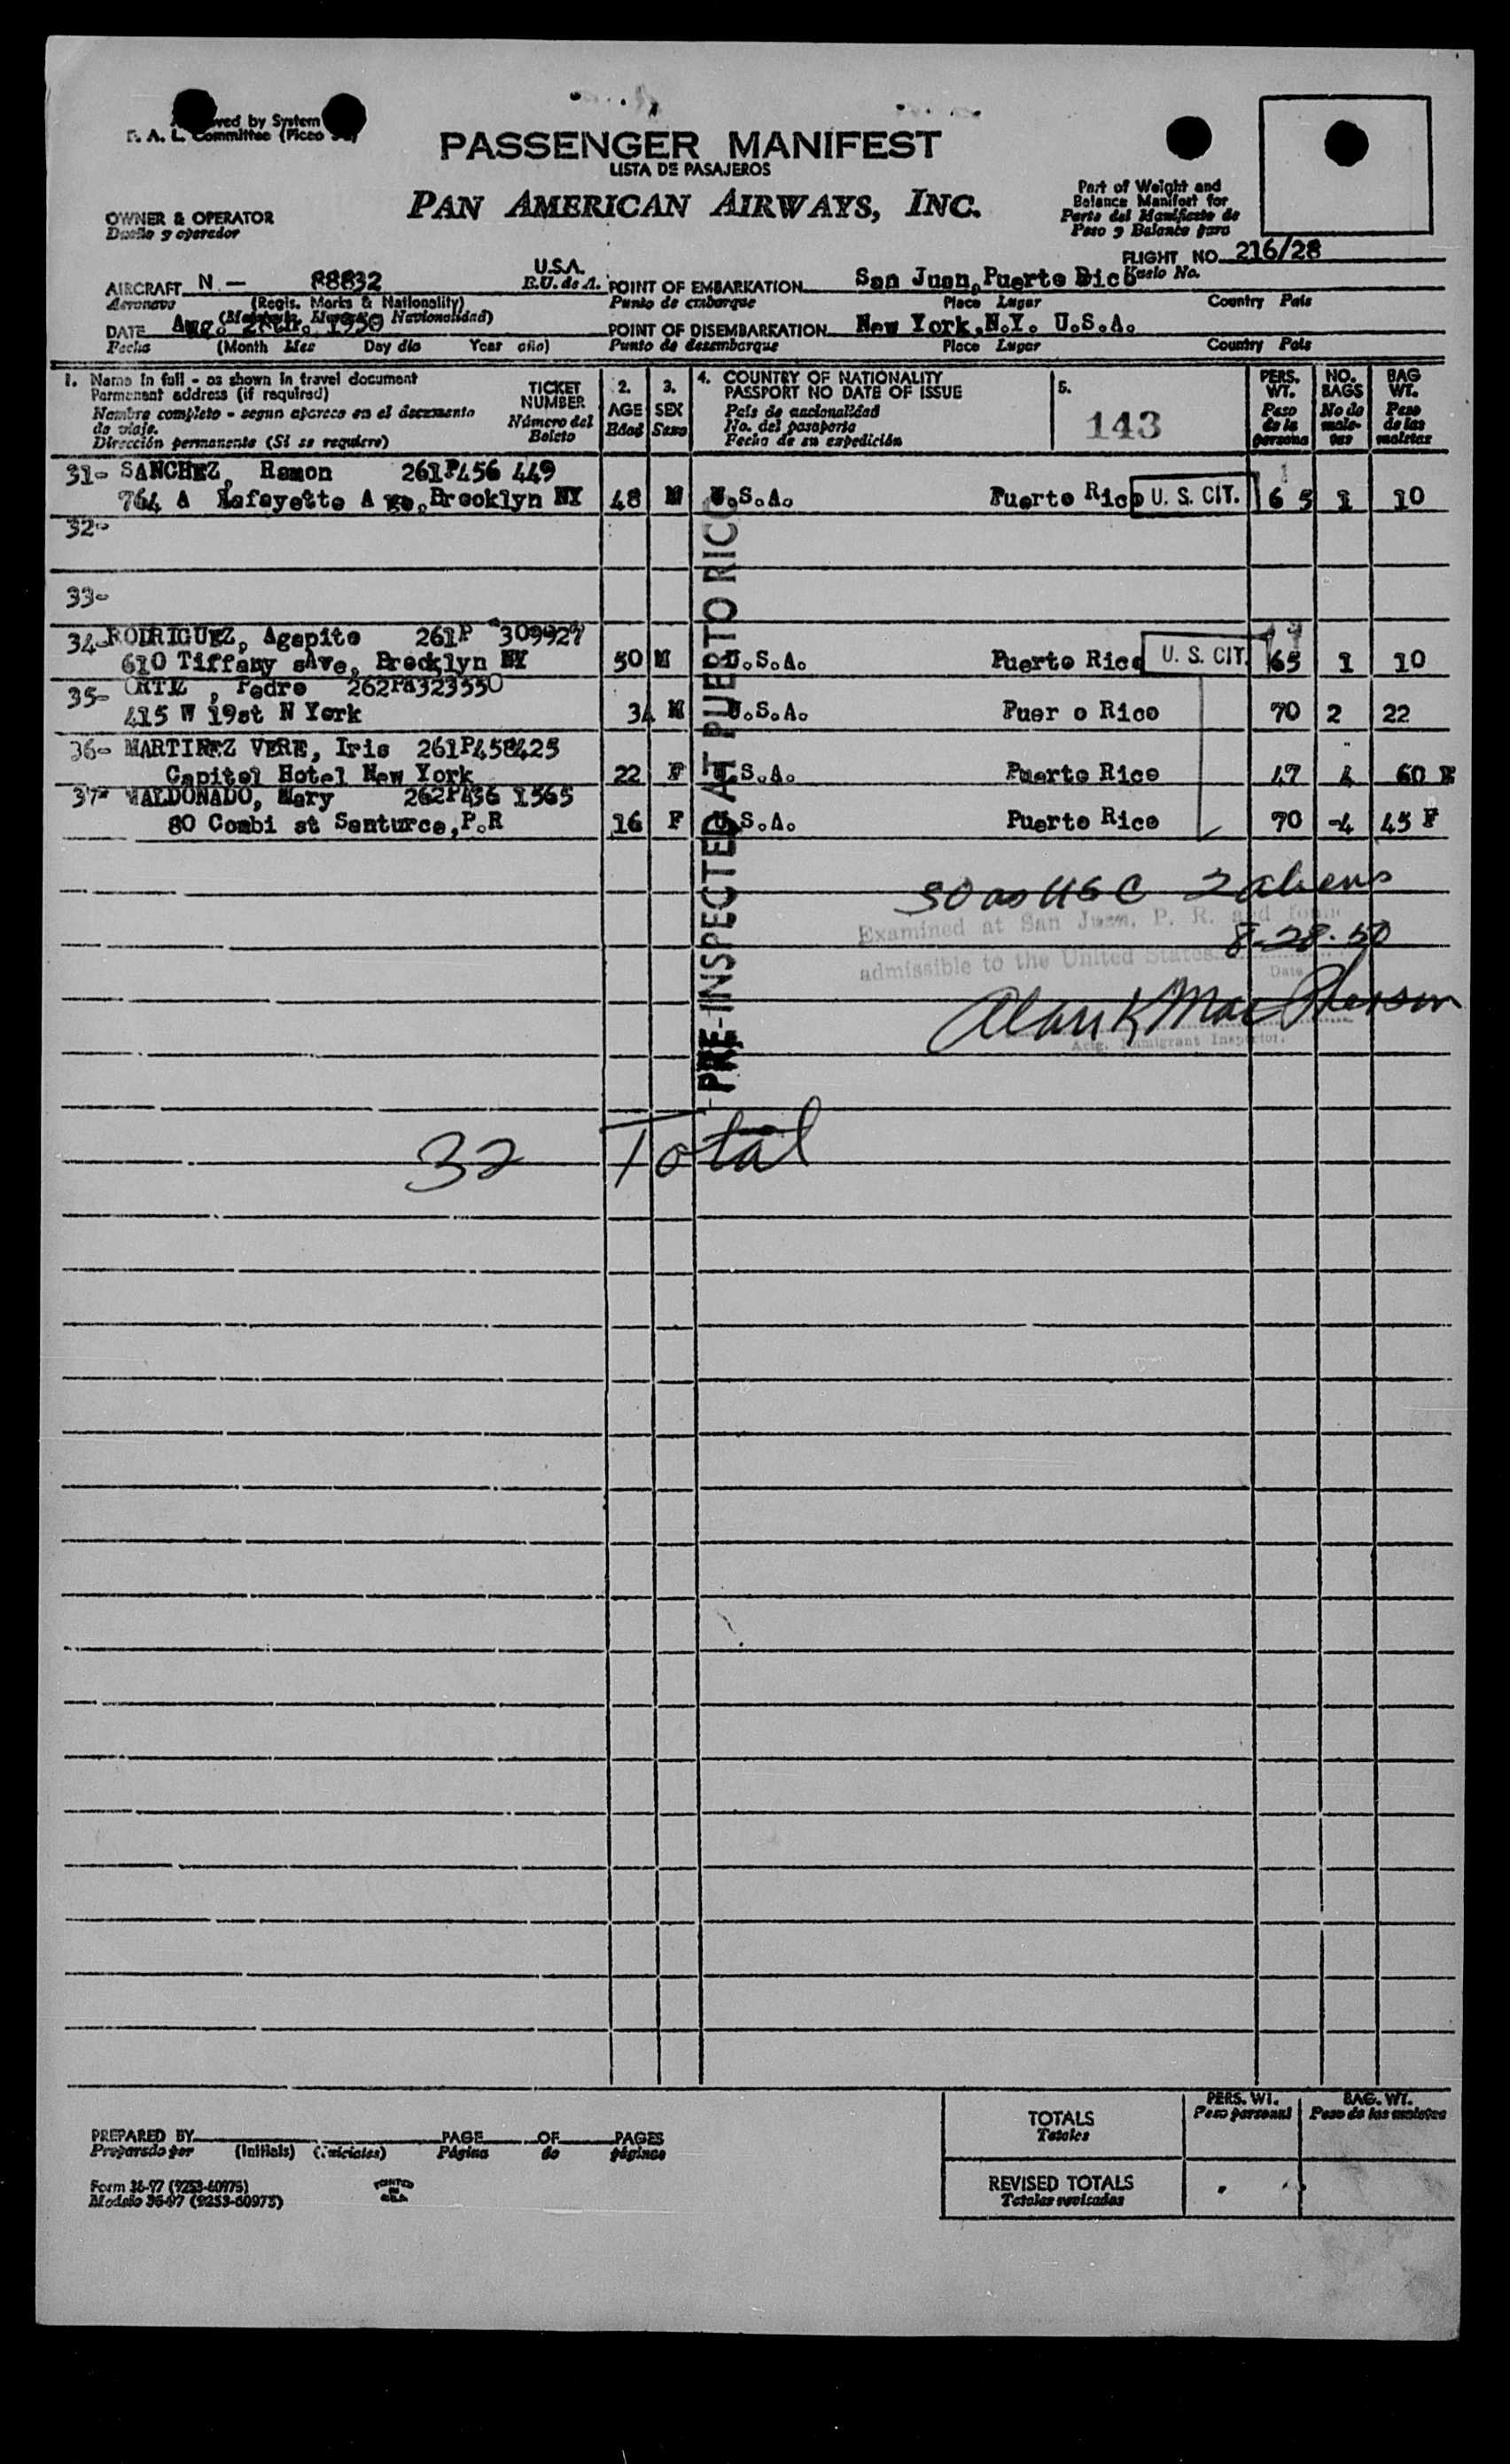 ved by System
F. A. L. Committee (Picao
PASSENGER MANIFEST
LISTA DE PASAJEROS
PAN AMERICAN AIRWAYS, INC.
Part of Weight and
Balance Manifest for
Parte del Manifiesto de
Peso y Balance para
OWNER & OPERATOR
Dueño y operador
FLIGHT NO. 216/28
Vuelo No.
AIRCRAFT N — 88832 U.S.A. POINT OF EMBARKATION San Juan, Puerto Rico
Aeronave (Regis. Marks & Nationality) E.U. de A. Punto de embarque Place Lugar Country Pais
DATE Aug. 1950 POINT OF DISEMBARKATION New York,N.Y. U.S.A.
Fecha (Month Mes Day dia Year año) Punto de desembarque Place Lugar Country Pais
1. Name in full - as shown in travel document
Permanent address (if required)
Nombre completo - segun aparece en el documento
de viaje.
Dirección permanente (Si se requiere)
TICKET
NUMBER
Número del
Boleto
2.
AGE
Edad
3.
SEX
Sexo
4. COUNTRY OF NATIONALITY
PASSPORT NO DATE OF ISSUE
País de nacionalidad
No. del pasaporte
Fecha de su expedición
5.
143
PERS.
WT.
Peso
de la
persona
NO.
BAGS
No de
male-
tas
BAG
WT.
Peso
de las
maletas
31- SANCHEZ, Ramon 261P456 449
764 A Lafayette A ve,Brooklyn NY 48 M U.S.A. Puerto Rico U. S. CIT. 6 5 1 10
32-
33-
34- RODRIGUEZ, Agapito 261P 309927
610 Tiffany sAve, Brocklyn NY 50 M U.S.A. Puerto Rico U. S. CIT. 65 1 10
35- ORTIZ , Pedro
415 W 19st N York 34 M U.S.A. Puer o Rico 70 2 22
36- MARTINEZ VERE, Iris 261P458425
Capitol Hotel New York 22 F U.S.A. Puerto Rico 47 4 60 F
37- MALDONADO, Mary 262P436 1565
80 Combi st Santurce,P.R 16 F U.S.A. Puerto Rico 70 4 45 F
PRE-INSPECTED AT PUERTO RICO
30 as USC 2 aliens
Examined at San Juan, P. R. and found
8-28-50
admissible to the United States
Date
Alan K MacPherson
Actg. Immigrant Inspector.
32 Total
PREPARED BY PAGE OF PAGES
Preparado por (Initials) (Iniciales) Página de páginas
Form 36-97 (9253-60975)
Modelo 36-97 (9253-60975)
PRINTED
IN
U.S.A.
PERS. WT.
Peso personal
BAG. WT.
Peso de las maletas
TOTALS
Totales
REVISED TOTALS
Totales revisados